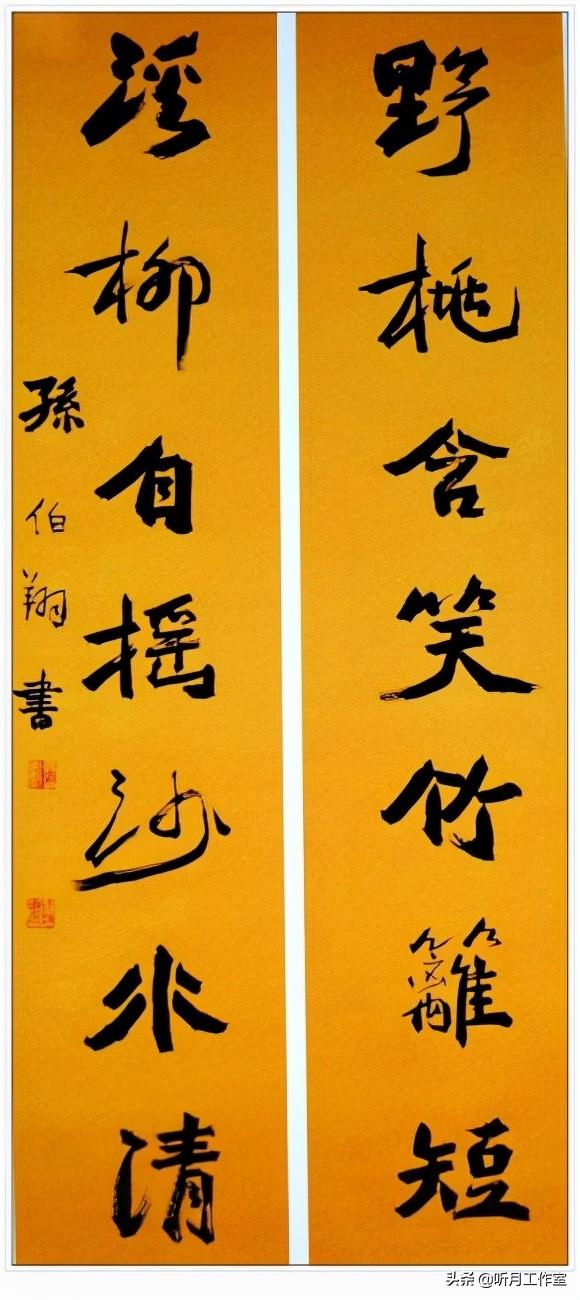 野桃含笑竹籬短
溪柳自摇沙水清
孫伯翔書
头条 @听月工作室